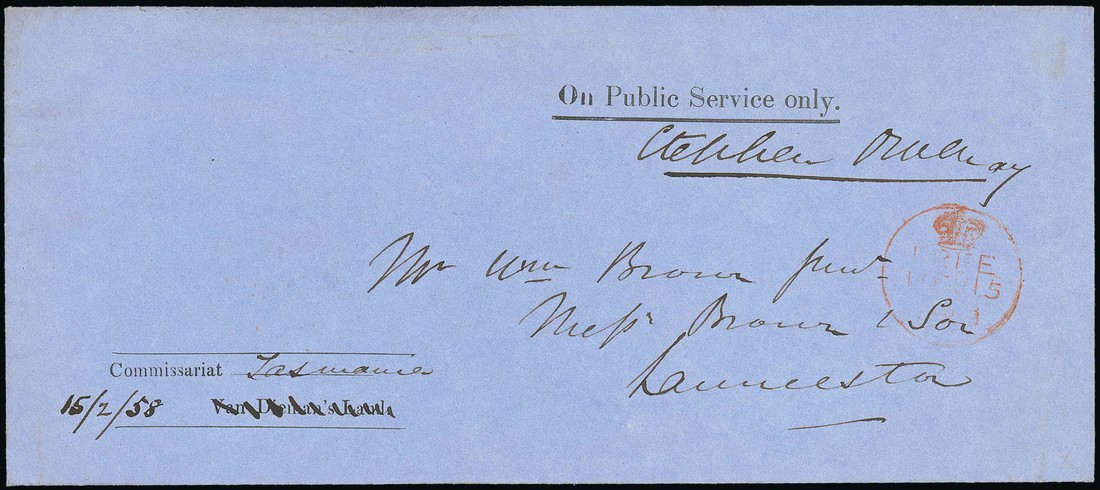 On Public Service only.
Stephen
Mr Wm Brown Junr
Messr Brown & Son
Launceston
Commissariat Tasmania
15/2/58 Van Dieman's Land
FREE
15